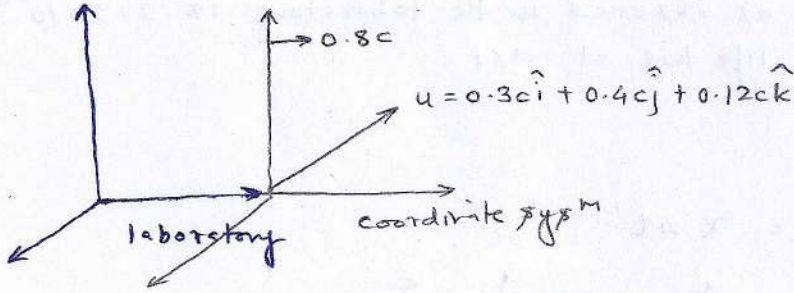 → 0.8c
u = 0.3cî + 0.4cĵ + 0.12ck̂
laboratory
coordinate sysᵐ